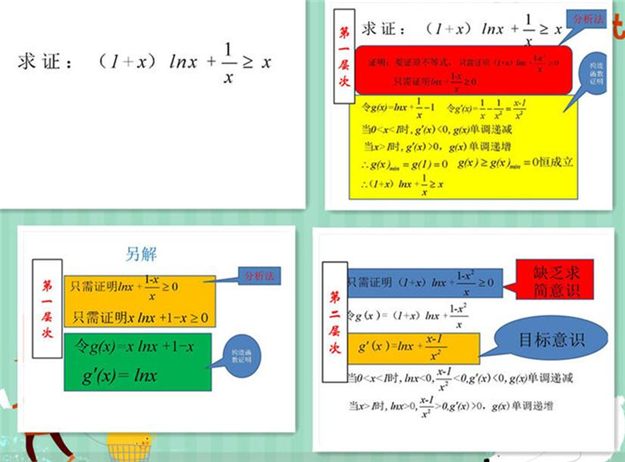 求证：（1+x）lnx +1/x ≥ x
第一层次
求证：（1+x）lnx +1/x ≥ x
分析法
证明：要证原不等式，只需证明（1+x）lnx +(1-x²)/x ≥0
只需证明lnx+(1-x)/x ≥0
构造函数证明
令g(x)=lnx+1/x-1 令g'(x)=1/x-1/x²=(x-1)/x²
当0<x<1时,g'(x)<0,g(x)单调递减
当x>1时,g'(x)>0，g(x)单调递增
∴g(x)min=g(1)=0 g(x)≥g(x)min=0恒成立
∴(1+x) lnx+1/x≥x
另解
第一层次
分析法
只需证明lnx+(1-x)/x≥0
只需证明x lnx+1-x≥0
令g(x)=x lnx+1-x
g'(x)= lnx
构造函数证明
第二层次
只需证明（1+x）lnx+(1-x²)/x≥0
缺乏求简意识
令g(x)=（1+x）lnx+(1-x²)/x
g'(x)=lnx+(x-1)/x²
目标意识
当0<x<1时,lnx<0,(x-1)/x²<0,g'(x)<0,g(x)单调递减
当x>1时,lnx>0,(x-1)/x²>0,g'(x)>0，g(x)单调递增